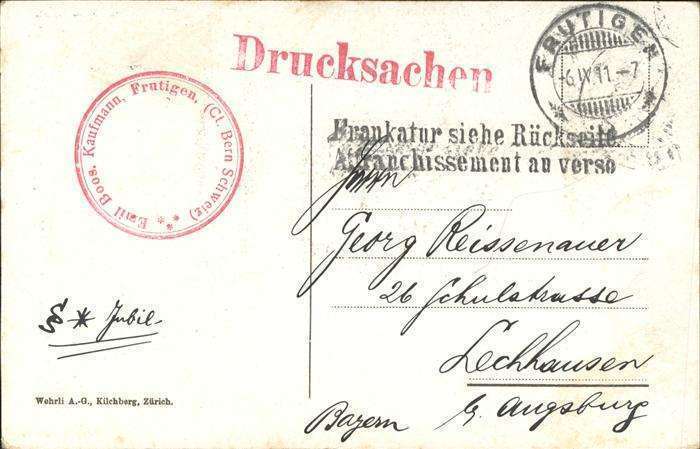 Drucksachen
FRUTIGEN
-6.IX.11.-7
Emil Boos. Kaufmann, Frutigen, (Ct. Bern Schweiz)
Frankatur siehe Rückseite.
Affranchissement au verso
Herrn
Georg Reissenauer
26 Schulstrasse
Lechhausen
b/ Augsburg
Bayern
§ * Jubil-
Wehrli A.-G., Kilchberg, Zürich.